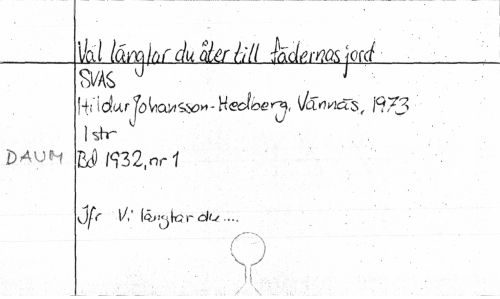 Väl längtar du åter till fädernas jord
SVAS
Hildur Johansson-Hedberg, Vännäs, 1973
1 str
DAUM Bd 1932, nr 1
Jfr Vi längtar du....